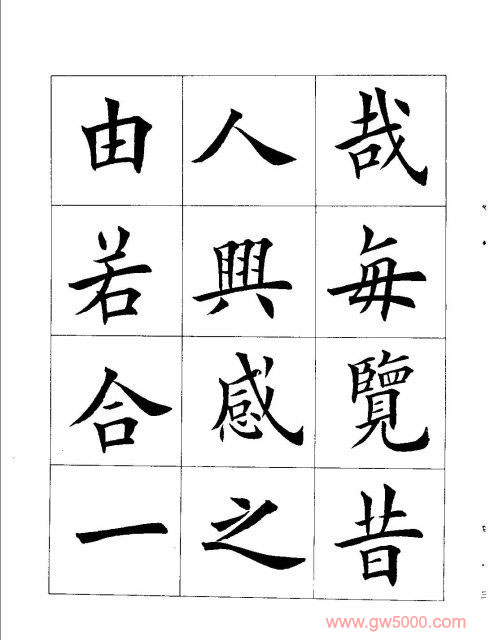 哉每覽昔
人興感之
由若合一
www.gw5000.com